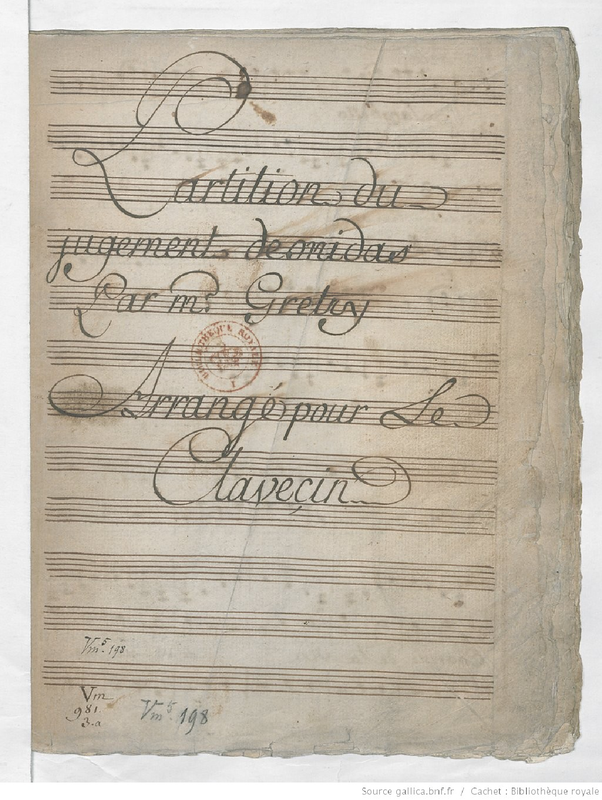 Partition du
jugement deonidas
Par mr. Gretry
Arrangé pour Le
Claveçin
BIBLIOTHEQUE ROYALE
Vm.5 198
Vm
981
3.a
Vm5 198
Source gallica.bnf.fr / Cachet : Bibliothèque royale